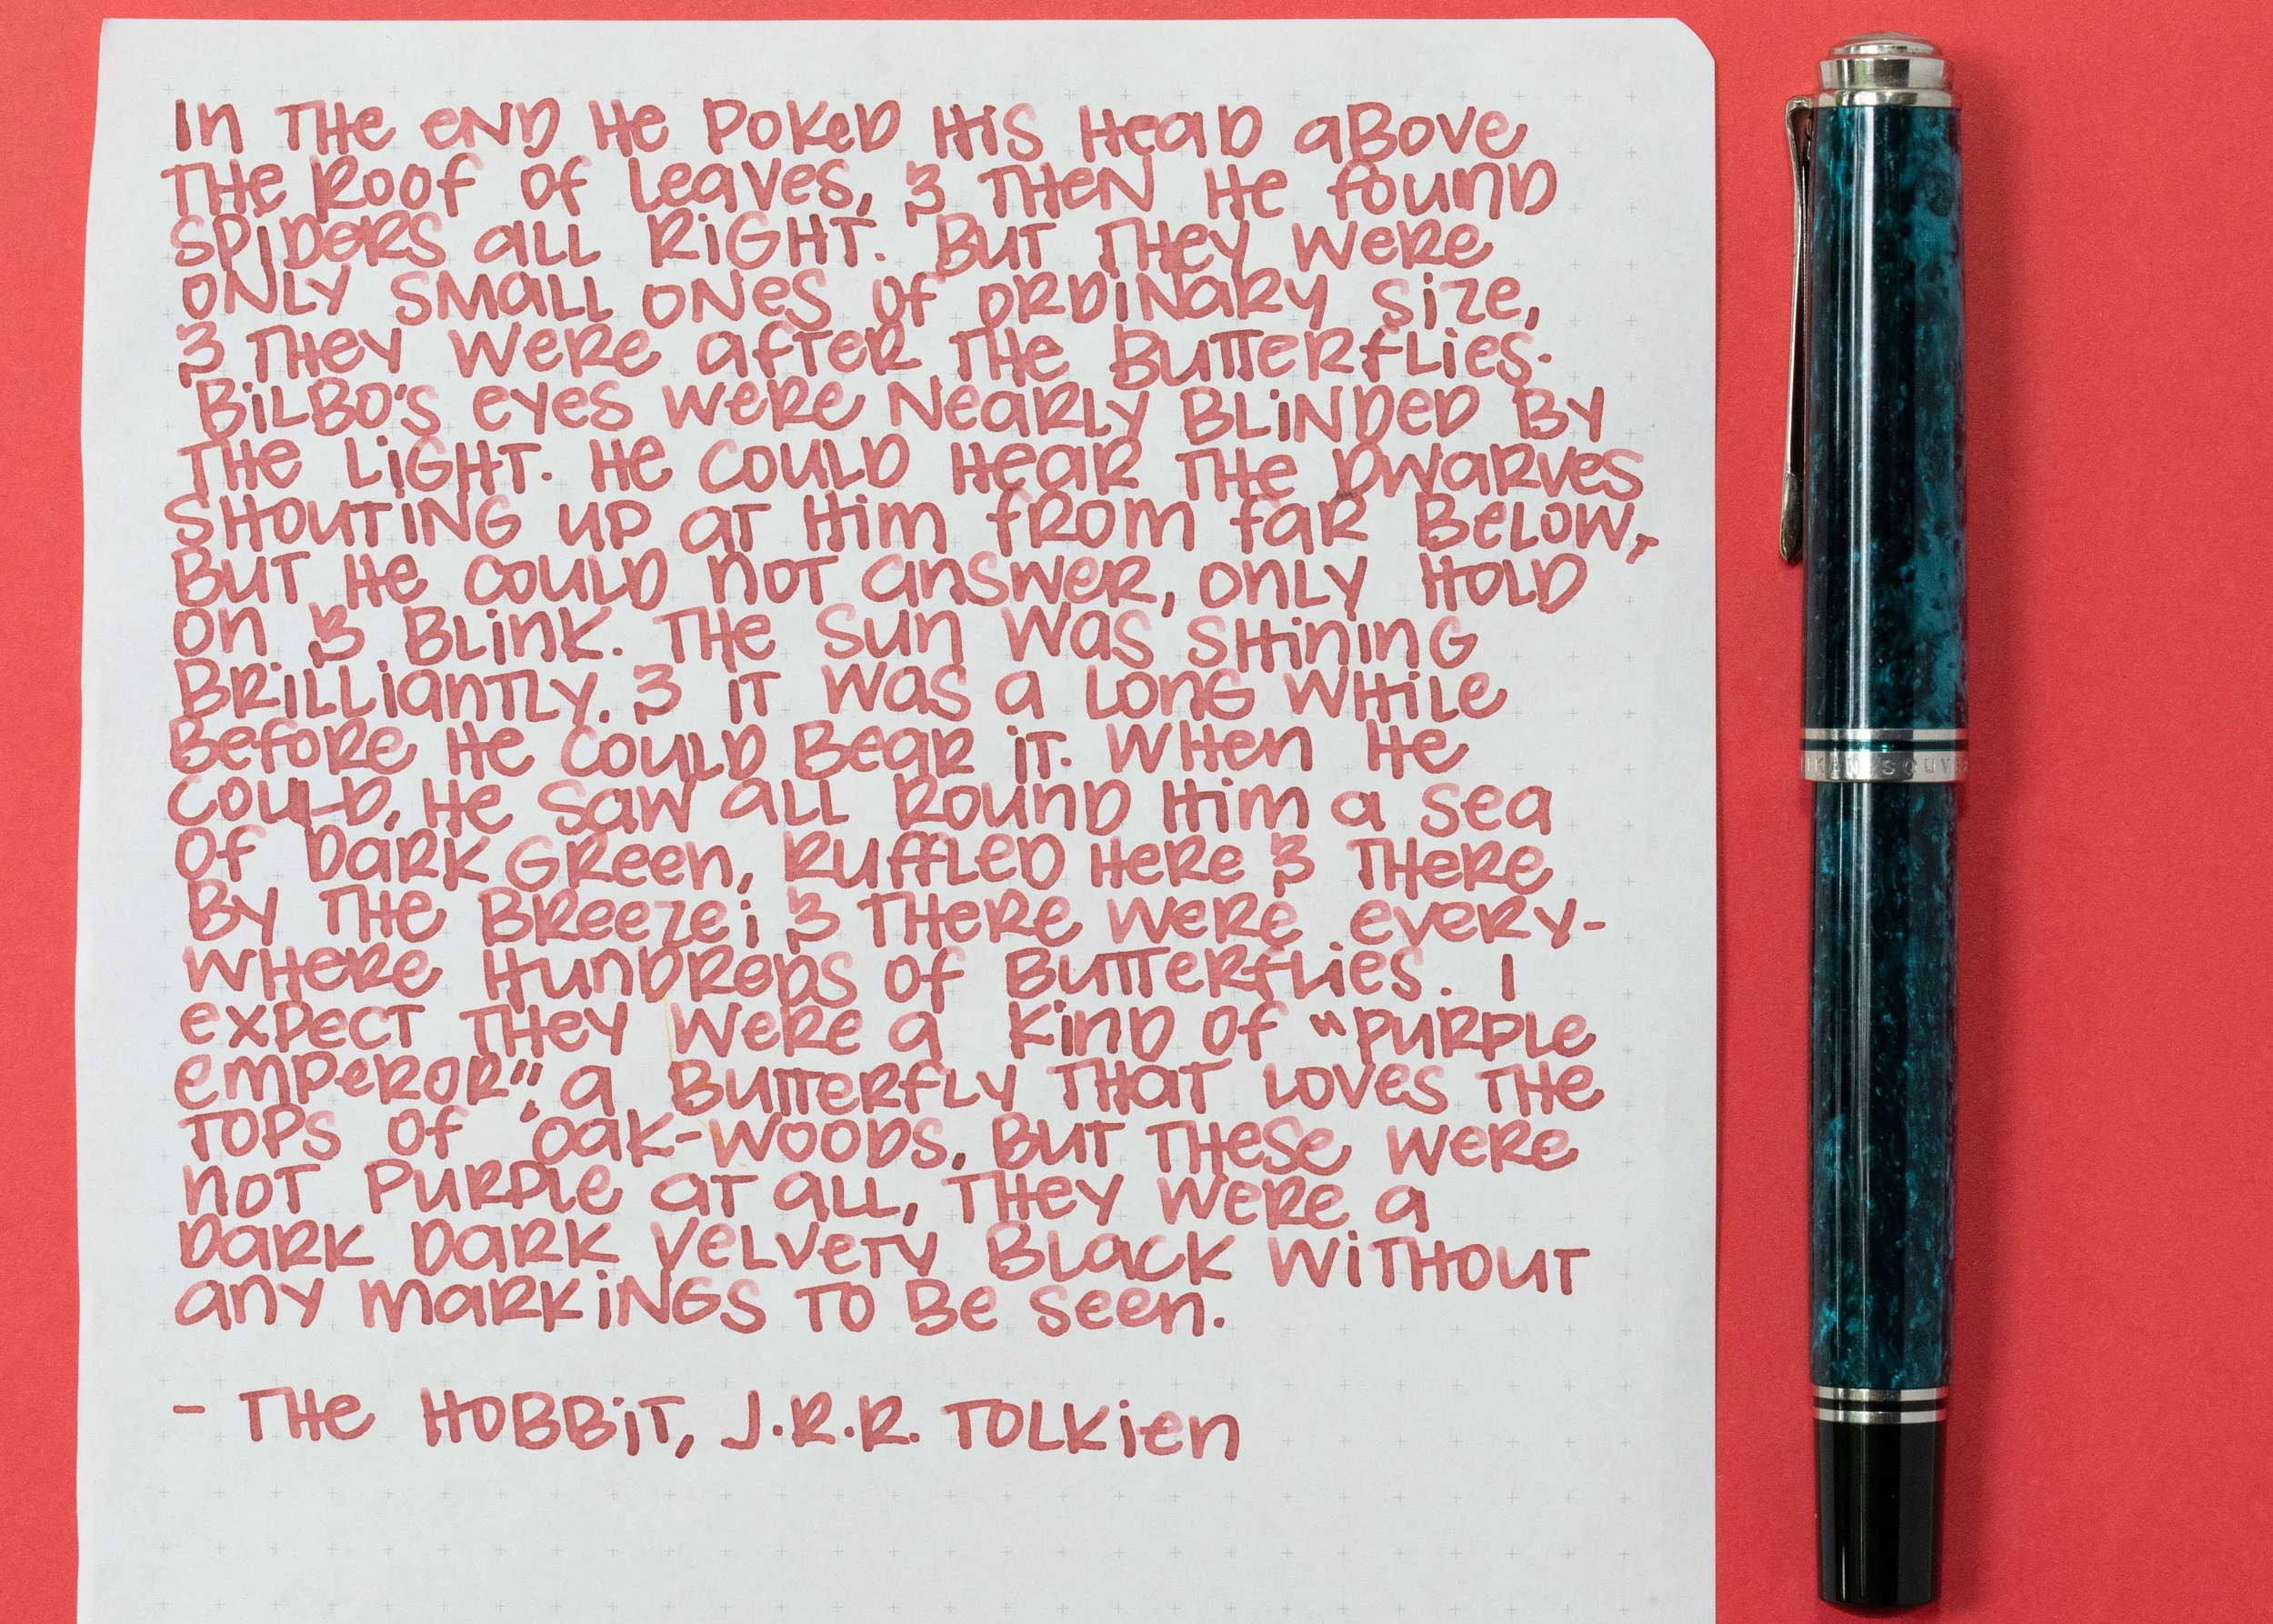 In THE END HE POKED HIS HEAD ABOVE
THE ROOF OF LEAVES, & THEN HE FOUND
SPIDERS ALL RIGHT. BUT THEY WERE
ONLY SMALL ONES OF ORDINARY SIZE,
& THEY WERE AFTER THE BUTTERFLIES.
BILBO'S EYES WERE NEARLY BLINDED BY
THE LIGHT. HE COULD HEAR THE DWARVES
SHOUTING UP AT HIM FROM FAR BELOW,
BUT HE COULD NOT ANSWER, ONLY HOLD
ON & BLINK. THE SUN WAS SHINING
BRILLIANTLY, & IT WAS A LONG WHILE
BEFORE HE COULD BEAR IT. WHEN HE
COULD, HE SAW ALL ROUND HIM A SEA
OF DARK GREEN, RUFFLED HERE & THERE
BY THE BREEZE; & THERE WERE EVERY-
WHERE HUNDREDS OF BUTTERFLIES. I
EXPECT THEY WERE A KIND OF "PURPLE
EMPEROR", A BUTTERFLY THAT LOVES THE
TOPS OF OAK-WOODS, BUT THESE WERE
NOT PURPLE AT ALL, THEY WERE A
DARK DARK VELVETY BLACK WITHOUT
ANY MARKINGS TO BE SEEN.
- THE HOBBIT, J.R.R. TOLKIEN